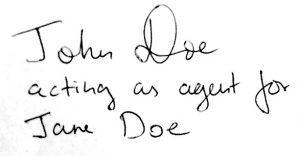 John Doe
acting as agent for
Jane Doe